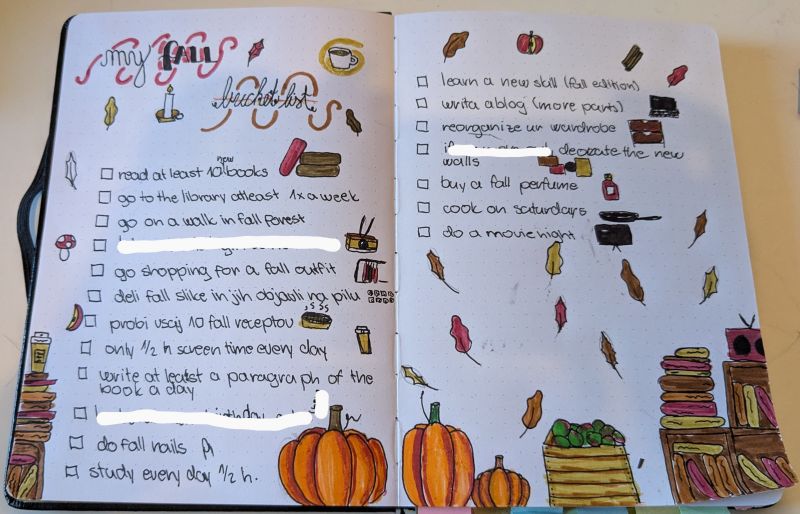 my FALL
bucket list
read at least 10 new books
go to the library atleast 1x a week
go on a walk in fall forest
go shopping for a fall outfit
deli fall slike in jih objavli na pilu
probi usaj 10 fall receptov
only 1/2 h screen time every day
write at least a paragraph of the
book a day
birthday
do fall nails
study every day 1/2 h.
learn a new skill (fall edition)
write a blog (more parts)
reorganize ur wardrobe
decorate the new
walls
buy a fall perfume
cook on saturdays
do a movie night